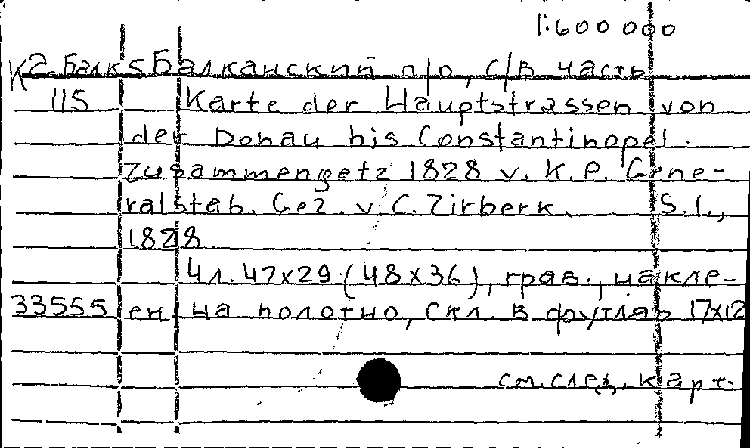 1:600 000
К2.Балк5 Балканский п/о, с/в часть
115 Karte der Hauptstrassen von
der Donau bis Constantinopel.
Zusammengetz 1828 v. K. P. Gene-
ralsteb. Gez. v. C. Zirberk. S.l.,
1828.
4л. 47x29 (48x36), грав., накле-
33555 ен на полотно, скл. в футляр 17x12
см. след. карт.